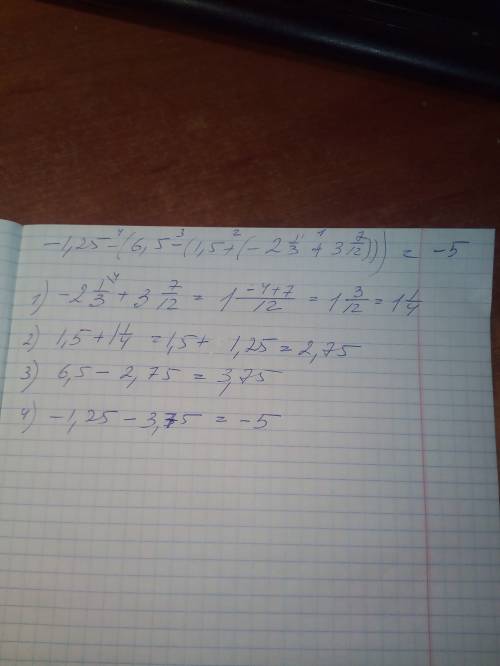 -1,25 - (6,5 - (1,5 + (-2 1/3 + 3 7/12))) = -5
1) -2 1/3 + 3 7/12 = 1 (-4+7)/12 = 1 3/12 = 1 1/4
2) 1,5 + 1 1/4 = 1,5 + 1,25 = 2,75
3) 6,5 - 2,75 = 3,75
4) -1,25 - 3,75 = -5